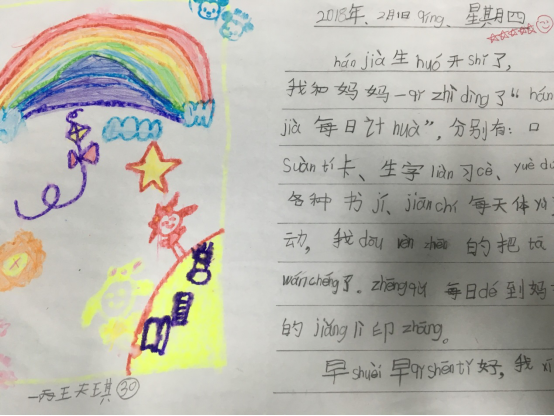 2018年、2月1日qíng、星期四
hán jià 生 huó 开 shǐ 了,
我和妈妈一qǐ zhì dìng了“hán
jià 每日计huà”, 分别有: 口
Suàn tí卡、生字liàn习cè、yuè dú
各种书jí、jiān chí 每天体
动, 我dōu 的把tā
wán chéng了。zhēng qǔ 每日dé到妈
的 jiǎng lì 印 zhāng。
早shuì 早qǐ shēn tǐ 好, 我 xī
30